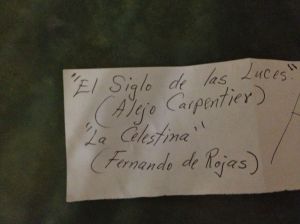 "El Siglo de las Luces"
(Alejo Carpentier)
"La Celestina"
(Fernando de Rojas)